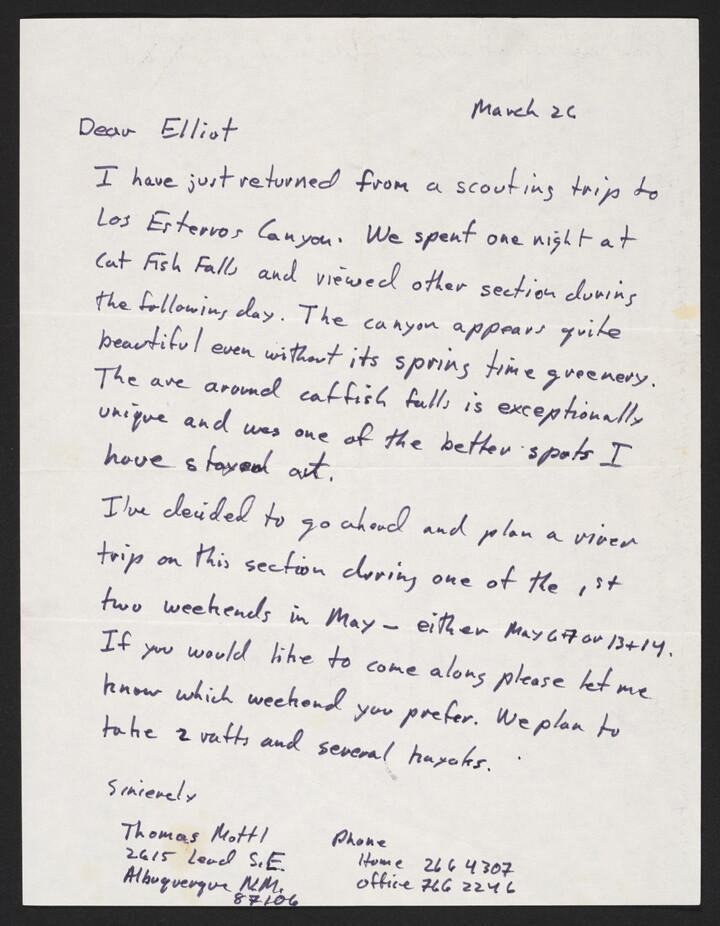 March 26
Dear Elliot
I have just returned from a scouting trip to
Los Esteros Canyon. We spent one night at
Cat Fish Falls and viewed other section during
the following day. The canyon appears quite
beautiful even without its spring time greenery.
The are around catfish falls is exceptionally
unique and was one of the better spots I
have stayed at.
I've decided to go ahead and plan a river
trip on this section during one of the 1st
two weekends in May – either May 6+7 or 13+14.
If you would like to come along please let me
know which weekend you prefer. We plan to
take 2 rafts and several kayaks.
Sincerely
Thomas Mottl
2615 Lead S.E.
Albuquerque N.M.
87106
Phone
Home 266 4307
office 766 2246